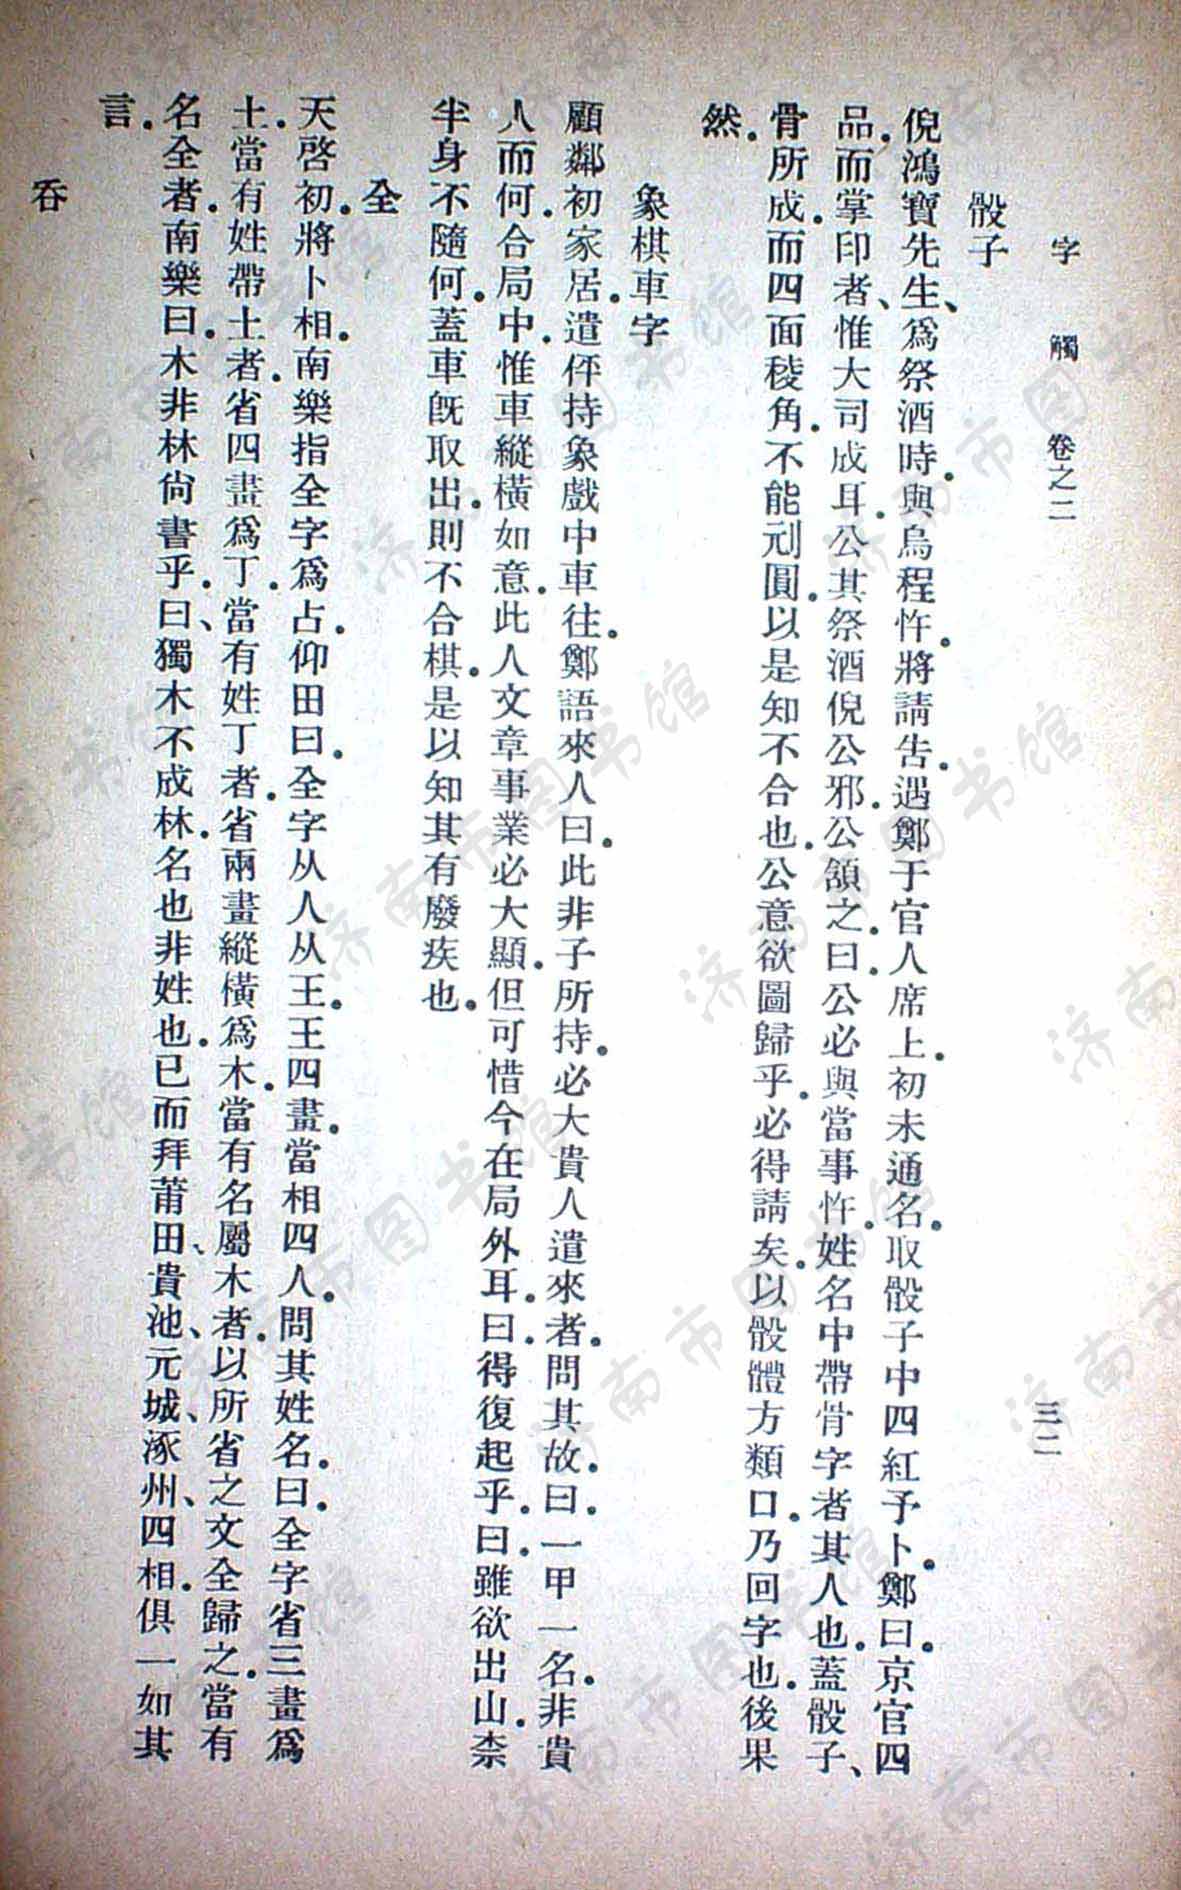 字觸 卷之二 三二
骰子
倪鴻寶先生、爲祭酒時。與烏程忤。將請告。遇鄭于官人席上。初未通名。取骰子中四紅予卜。鄭曰。京官四
品。而掌印者、惟大司成耳。公其祭酒倪公邪。公頷之。曰。公必與當事忤。姓名中帶骨字者其人也。蓋骰子、
骨所成。而四面稜角。不能刓圓。以是知不合也。公意欲圖歸乎。必得請矣。以骰體方類口。乃回字也。後果
然。
象棋車字
顧鄰初家居。遣伻持象戲中車往。鄭語來人曰。此非子所持。必大貴人遣來者。問其故。曰。一甲一名。非貴
人而何。合局中。惟車縱橫如意。此人文章事業必大顯。但可惜今在局外耳。曰。得復起乎。曰。雖欲出山。柰
半身不隨何。蓋車旣取出。則不合棋。是以知其有廢疾也。
全
天啓初。將卜相。南樂指全字爲占。仰田曰。全字从人从王。王四畫。當相四人。問其姓名。曰。全字省三畫爲
土。當有姓帶土者。省四畫爲丁。當有姓丁者。省兩畫縱橫爲木。當有名屬木者。以所省之文全歸之。當有
名全者。南樂曰。木非林尙書乎。曰、獨木不成林。名也非姓也。已而拜莆田、貴池、元城、涿州、四相。俱一如其
言。
吞